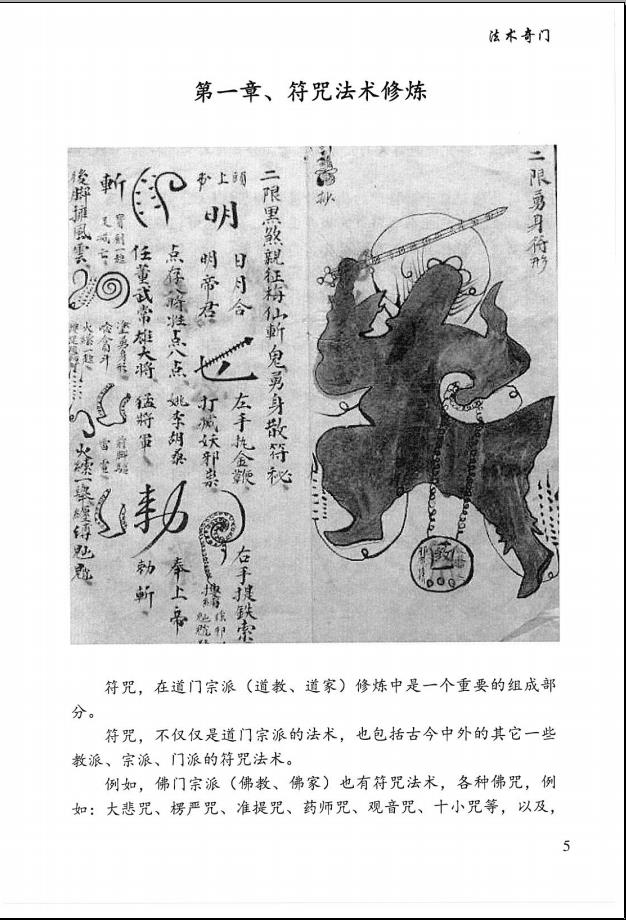 法术奇门
第一章、符咒法术修炼
二限勇身符形
二限黑煞親征梅仙斬鬼勇身散符秘
日月合
左手托金鞭
右手提鉄索
明
明帝君
打滅妖邪祟
点存八將姓点八点
姚李胡桑
奉上帝
任董武常雄大將
猛將軍
勅
勅斬
斬
後脚擁風雲
火繞一舉
符咒，在道门宗派（道教、道家）修炼中是一个重要的组成部
分。
符咒，不仅仅是道门宗派的法术，也包括古今中外的其它一些
教派、宗派、门派的符咒法术。
例如，佛门宗派（佛教、佛家）也有符咒法术，各种佛咒，例
如：大悲咒、楞严咒、准提咒、药师咒、观音咒、十小咒等，以及，
5